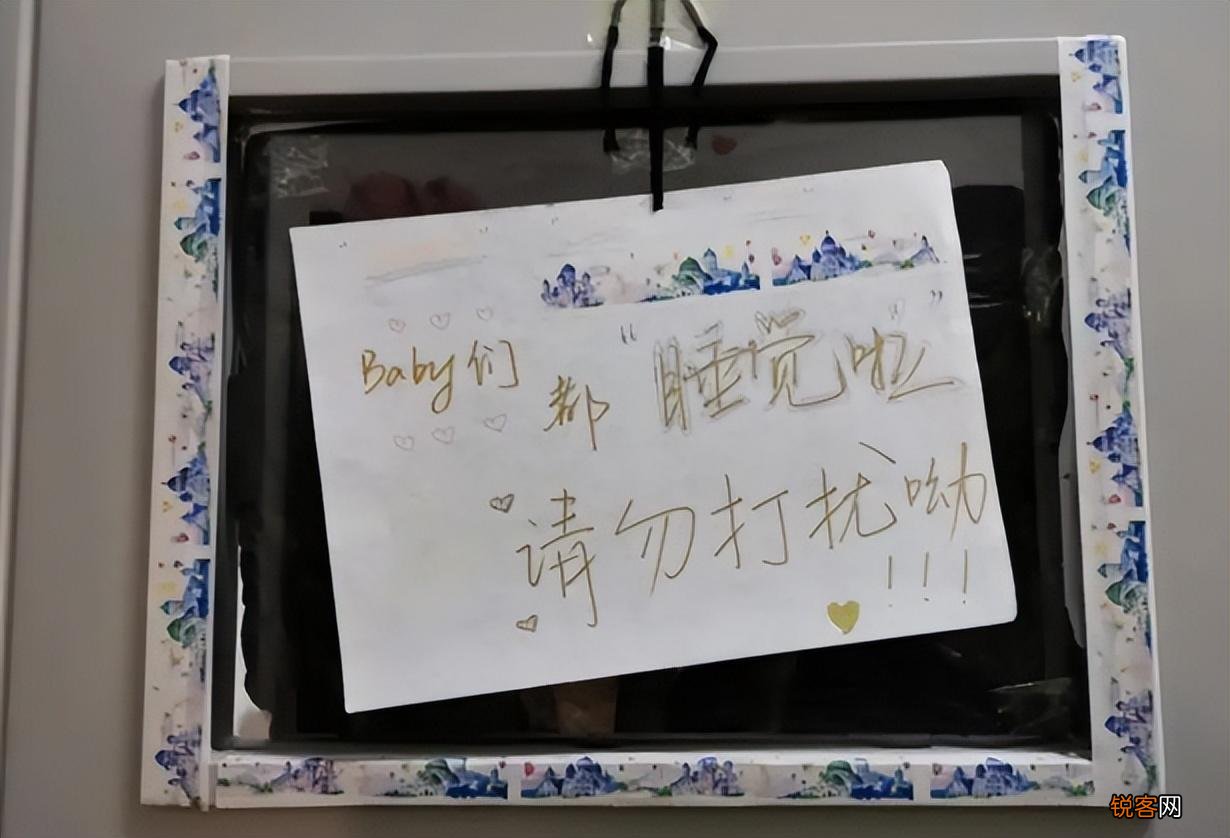 Baby们都“睡觉啦”
请勿打扰呦
!!!
锐客网